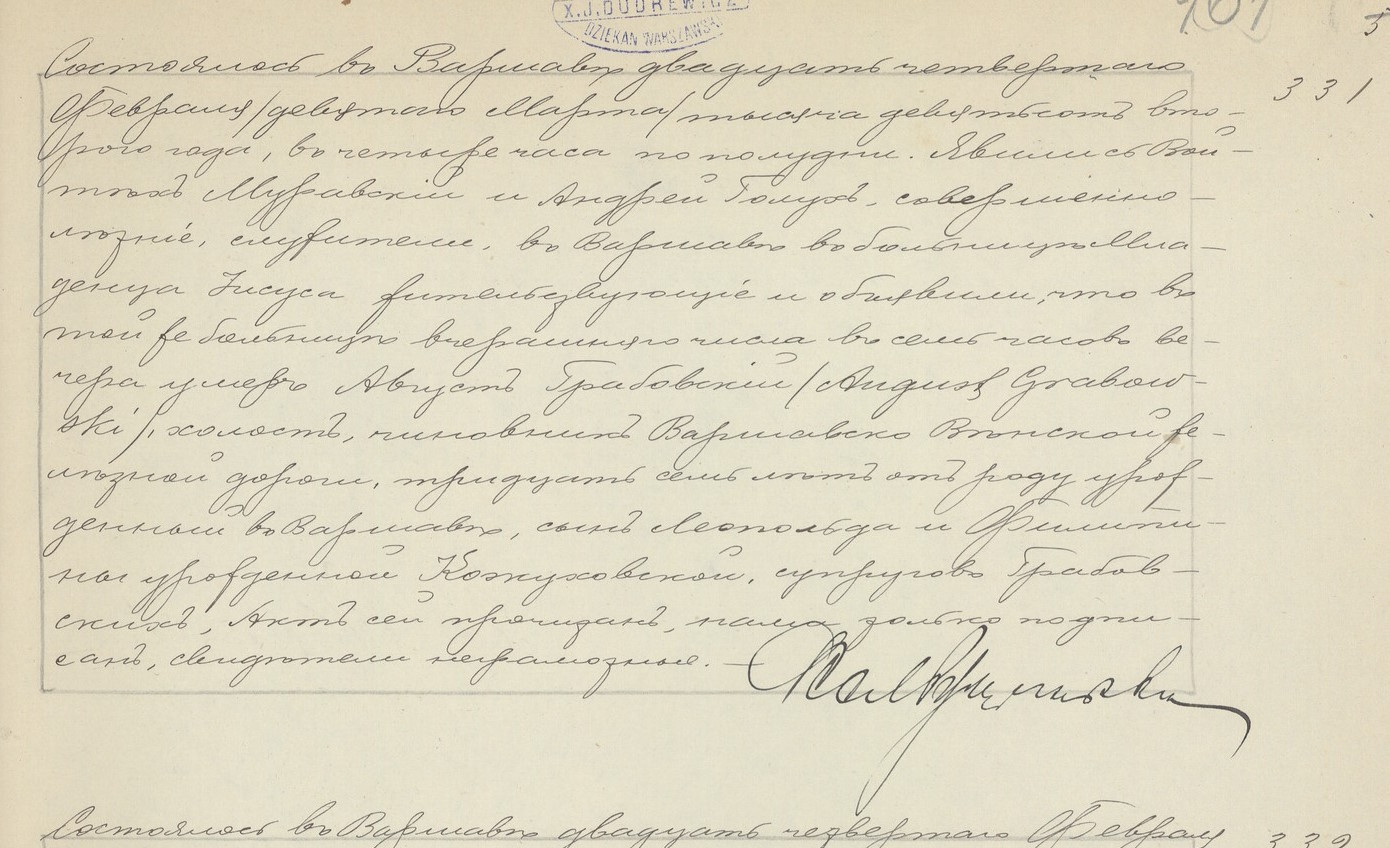 X.J.DUDREWICZ
DZIEKAN WARSZAWSKI
Состоялось въ Варшавѣ двадцать четвертаго
331
Февраля /девятаго Марта/ тысяча девятьсотъ вто-
рого года, въ четыре часа по полудни. Явились Вой-
тѣхъ Муравскій и Андрей Голухъ, совершенно-
лѣтніе, служители, въ Варшавѣ въ больницѣ Мла-
денца Іисуса жительствующіе и объявили, что въ
той же больницѣ вчерашняго числа въ семь часовъ ве-
чера умеръ Августъ Грабовскій /August Grabow-
ski/, холостъ, чиновникъ Варшавско Вѣнской же-
лѣзной дороги, тридцать семь лѣтъ отъ роду урож-
денный въ Варшавѣ, сынъ Леопольда и Филипи-
ны урожденной Кожуховской, супруговъ Грабов-
скихъ, Актъ сей прочитанъ, нами только подпи-
санъ, свидѣтели неграмотные. —
Состоялось въ Варшавѣ двадцать четвертаго Февраля
332